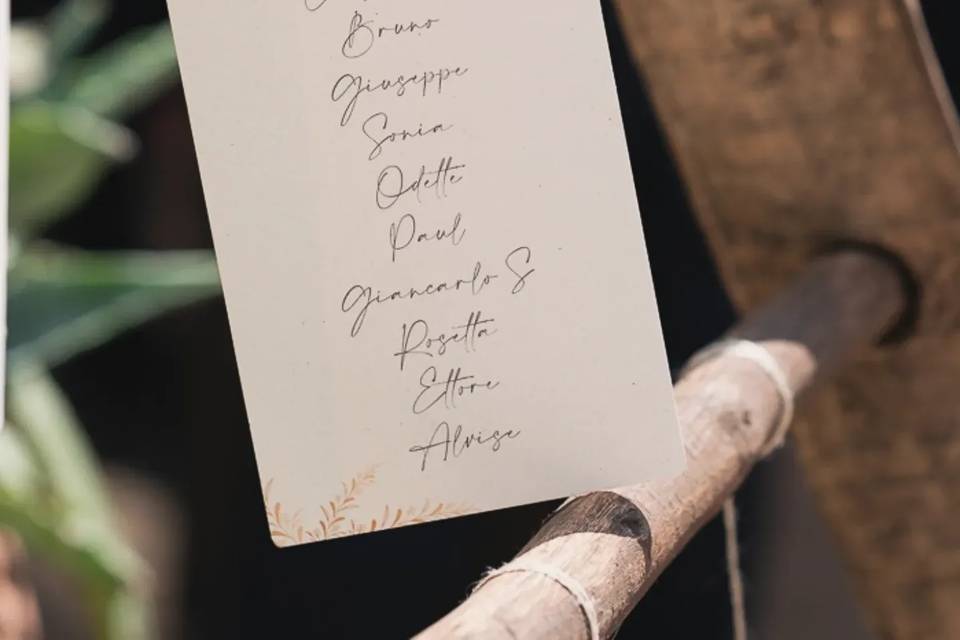 Bruno
Giuseppe
Sonia
Odette
Paul
Giancarlo S
Rosetta
Ettore
Alvise